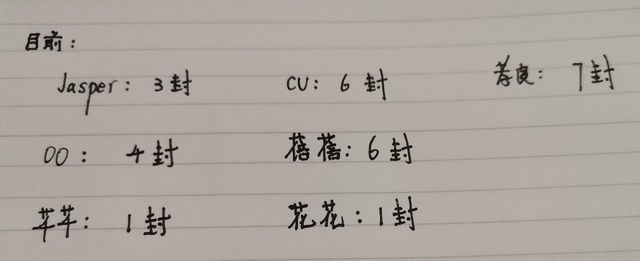 目前：
Jasper： 3封 CU： 6封 荐良： 7封
OO： 4封 蓓蓓：6封
芊芊： 1封 花花：1封